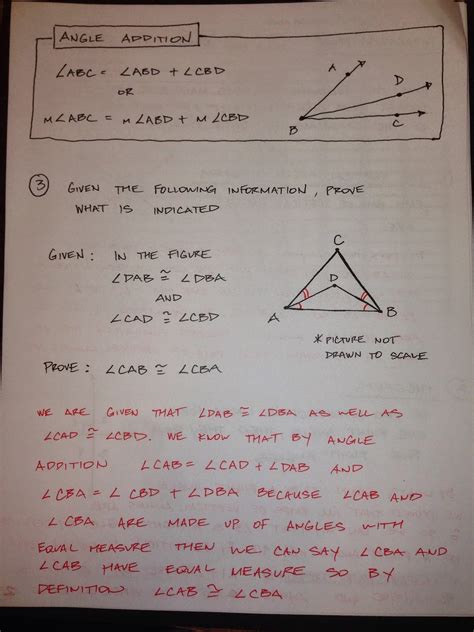 ANGLE ADDITION
∠ABC = ∠ABD + ∠CBD
OR
m∠ABC = m∠ABD + m∠CBD
A
D
B
C
③ GIVEN THE FOLLOWING INFORMATION, PROVE
WHAT IS INDICATED
GIVEN: IN THE FIGURE
∠DAB ≅ ∠DBA
AND
∠CAD ≅ ∠CBD
C
D
A
B
* PICTURE NOT
DRAWN TO SCALE
PROVE: ∠CAB ≅ ∠CBA
WE ARE GIVEN THAT ∠DAB ≅ ∠DBA AS WELL AS
∠CAD ≅ ∠CBD. WE KNOW THAT BY ANGLE
ADDITION ∠CAB = ∠CAD + ∠DAB AND
∠CBA = ∠CBD + ∠DBA BECAUSE ∠CAB AND
∠CBA ARE MADE UP OF ANGLES WITH
EQUAL MEASURE THEN WE CAN SAY ∠CBA AND
∠CAB HAVE EQUAL MEASURE SO BY
DEFINITION ∠CAB ≅ ∠CBA